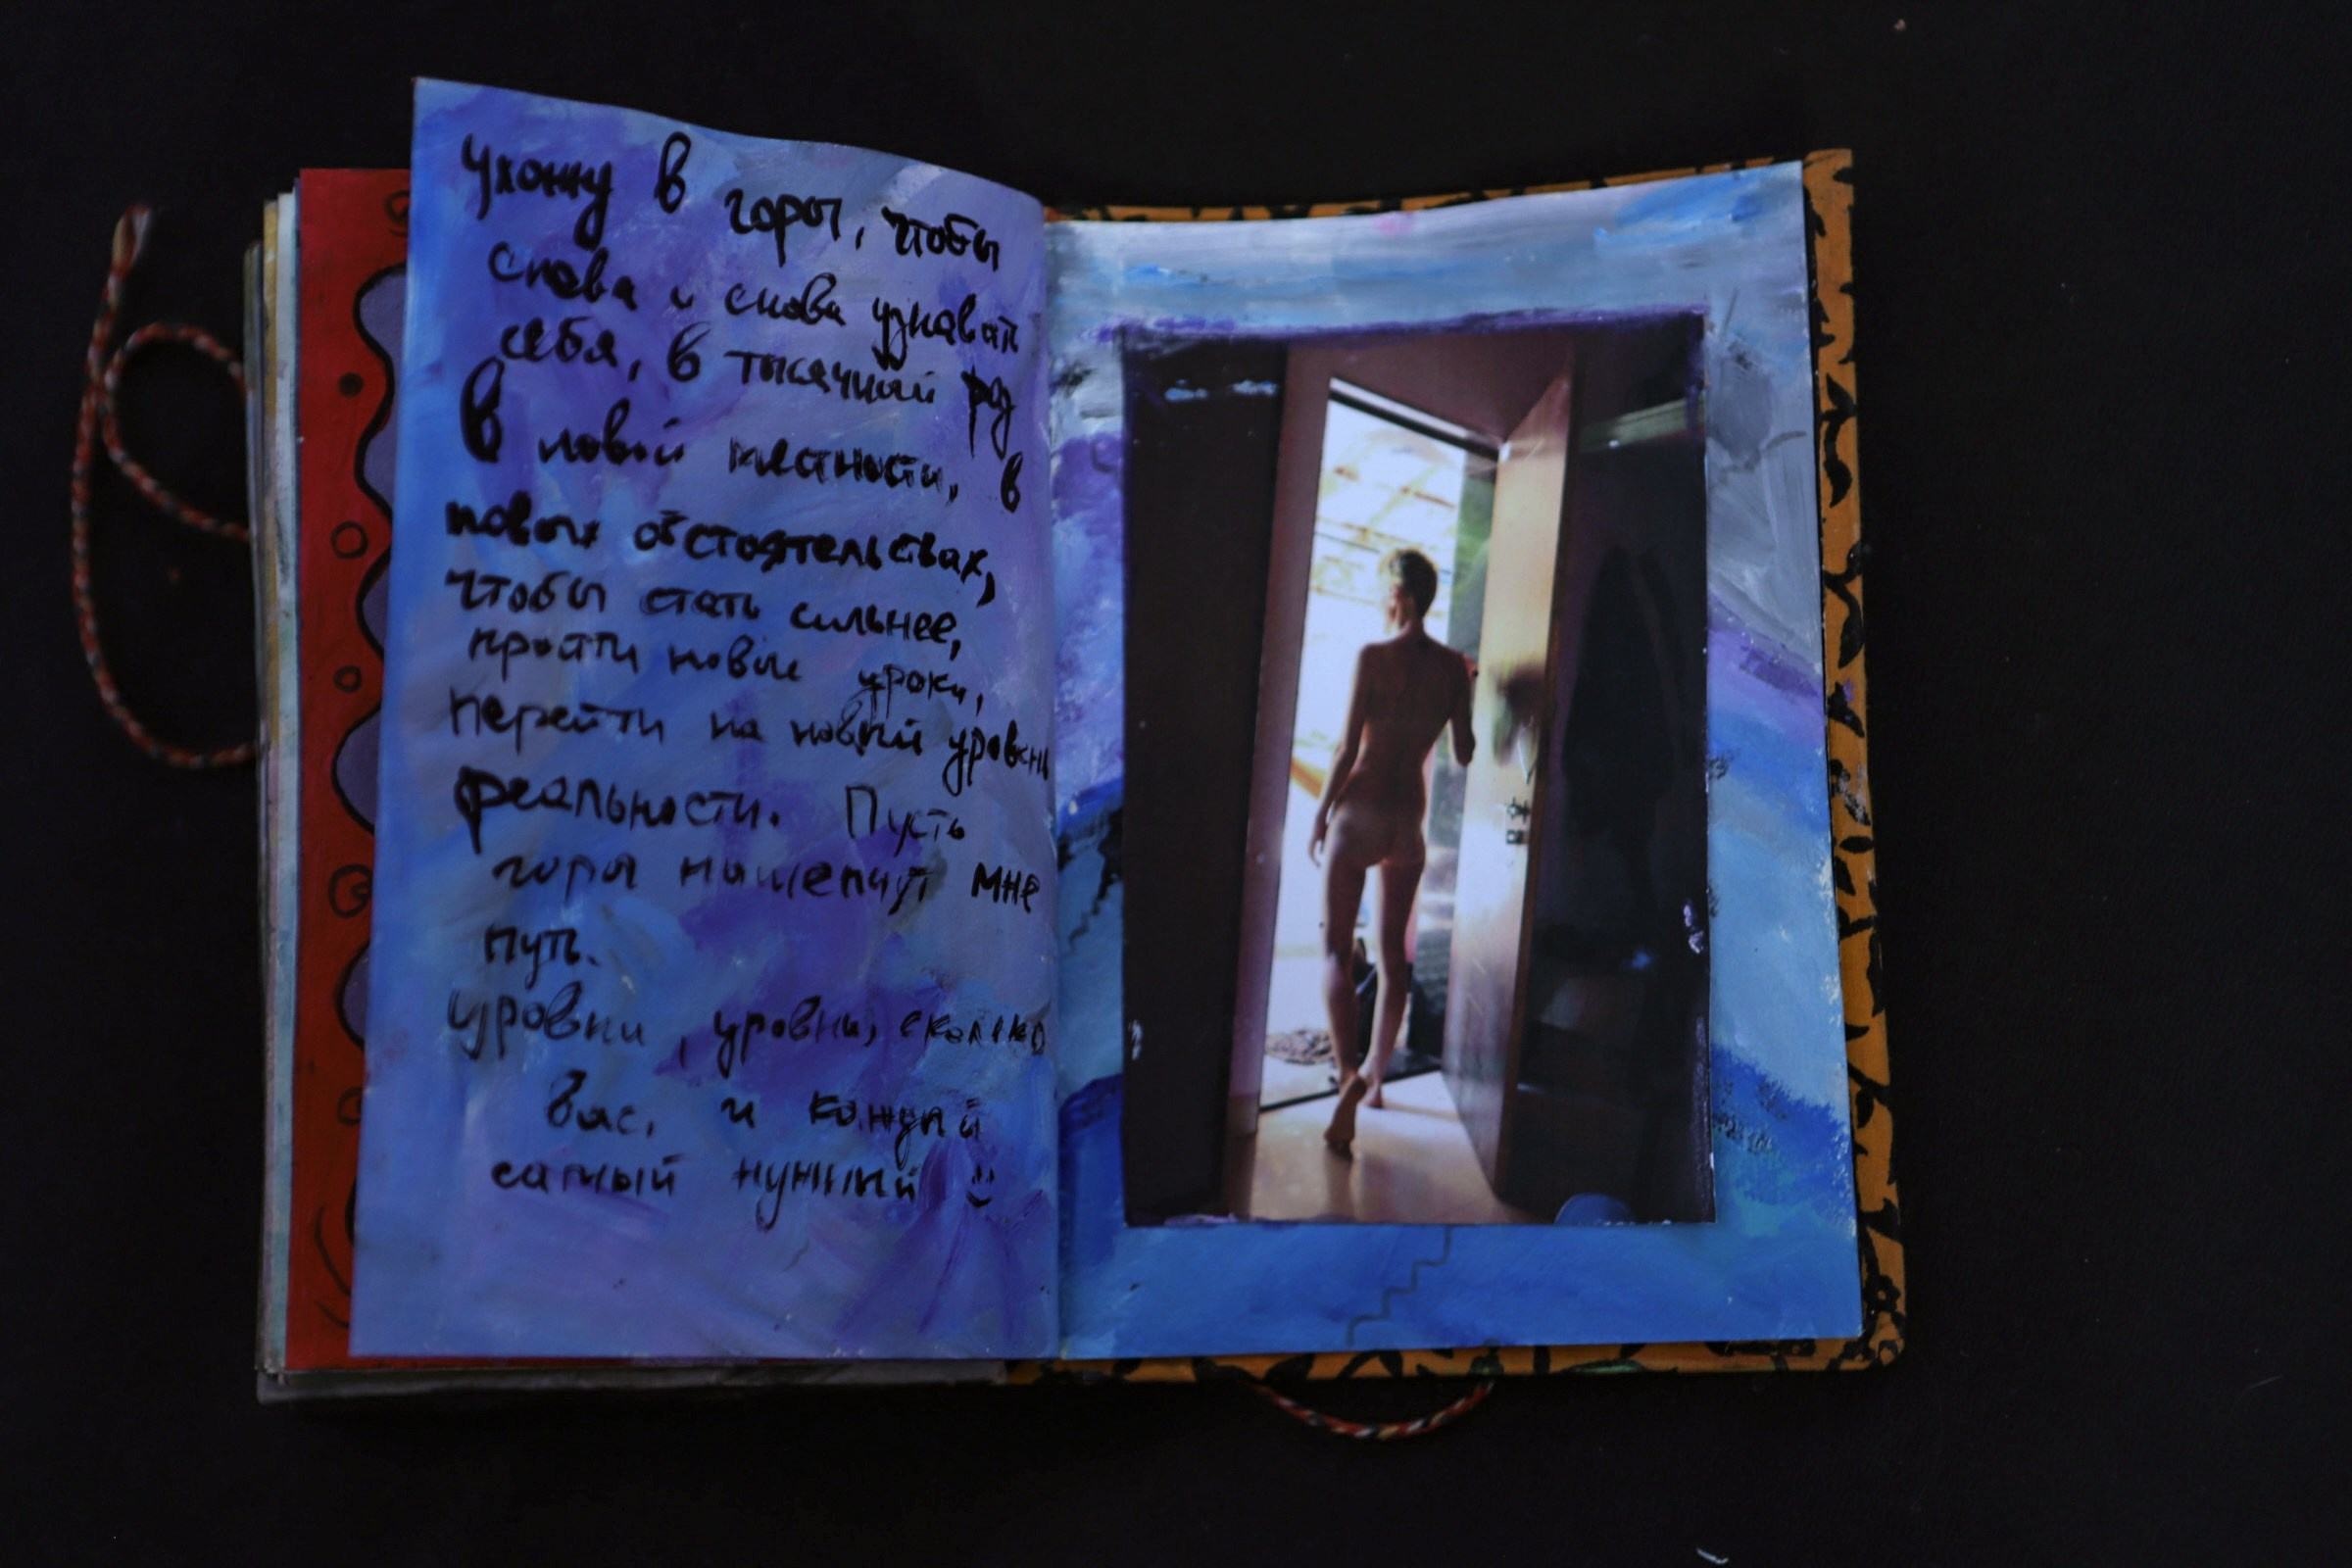 ухожу в горы, чтобы
снова и снова узнавать
себя, в тысячный раз
в новой местности, в
новых обстоятельствах,
чтобы стать сильнее,
пройти новые уроки,
перейти на новый уровень
реальности. Пусть
горы нашепчут мне
путь.
уровни, уровни, сколько
вас, и каждый
самый нужный